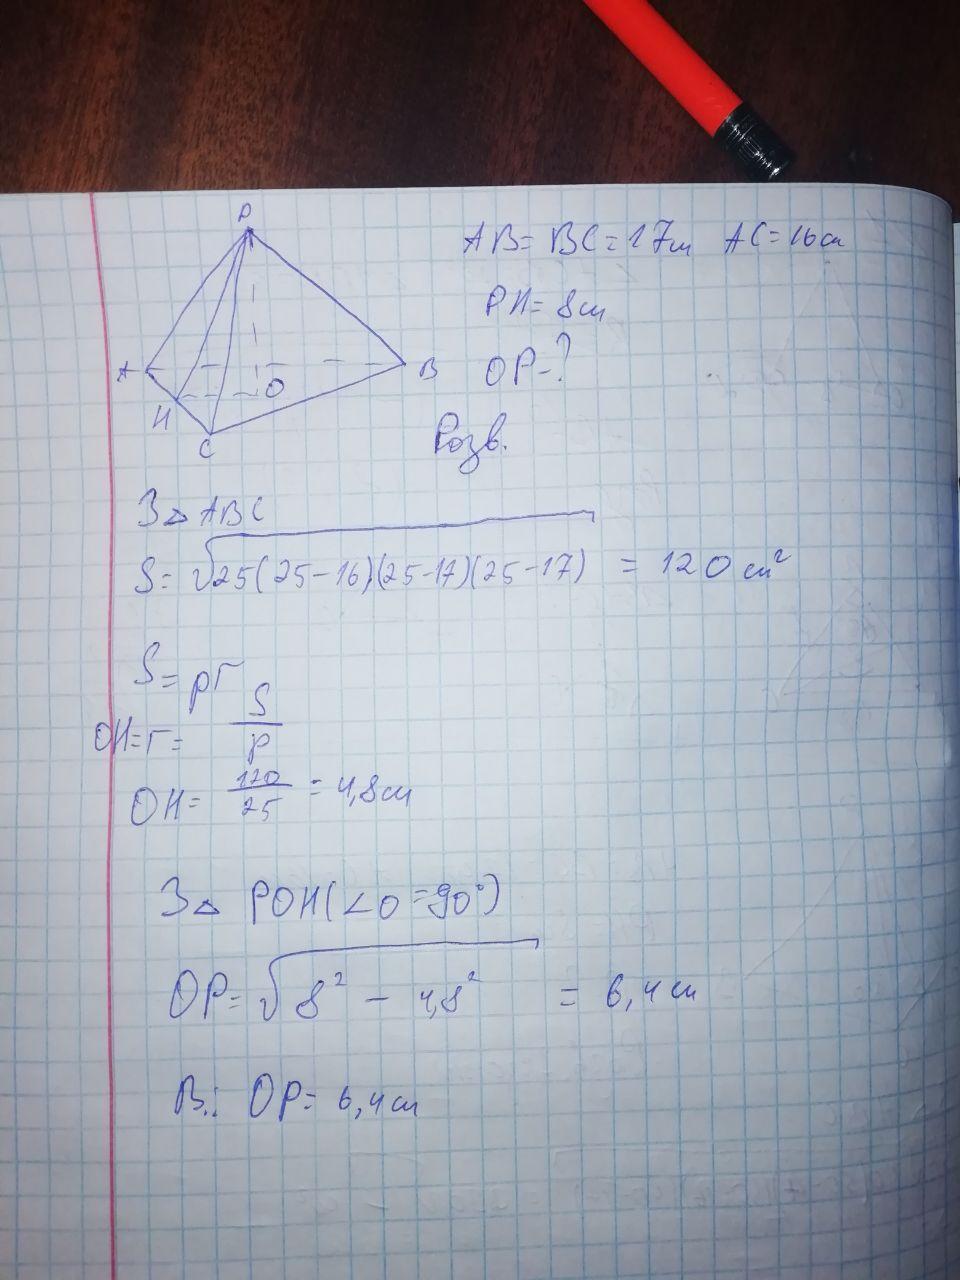 P
AB = BC = 17см AC = 16см
PH = 8см
A
B
OP - ?
O
H
C
Розв.
З △ ABC
S = √25(25-16)(25-17)(25-17) = 120 см²
S = pr
OH = r = S/p
OH = 120/25 = 4,8см
З △ POH (∠O = 90°)
OP = √8² - 4,8² = 6,4 см
В.: OP = 6,4 см